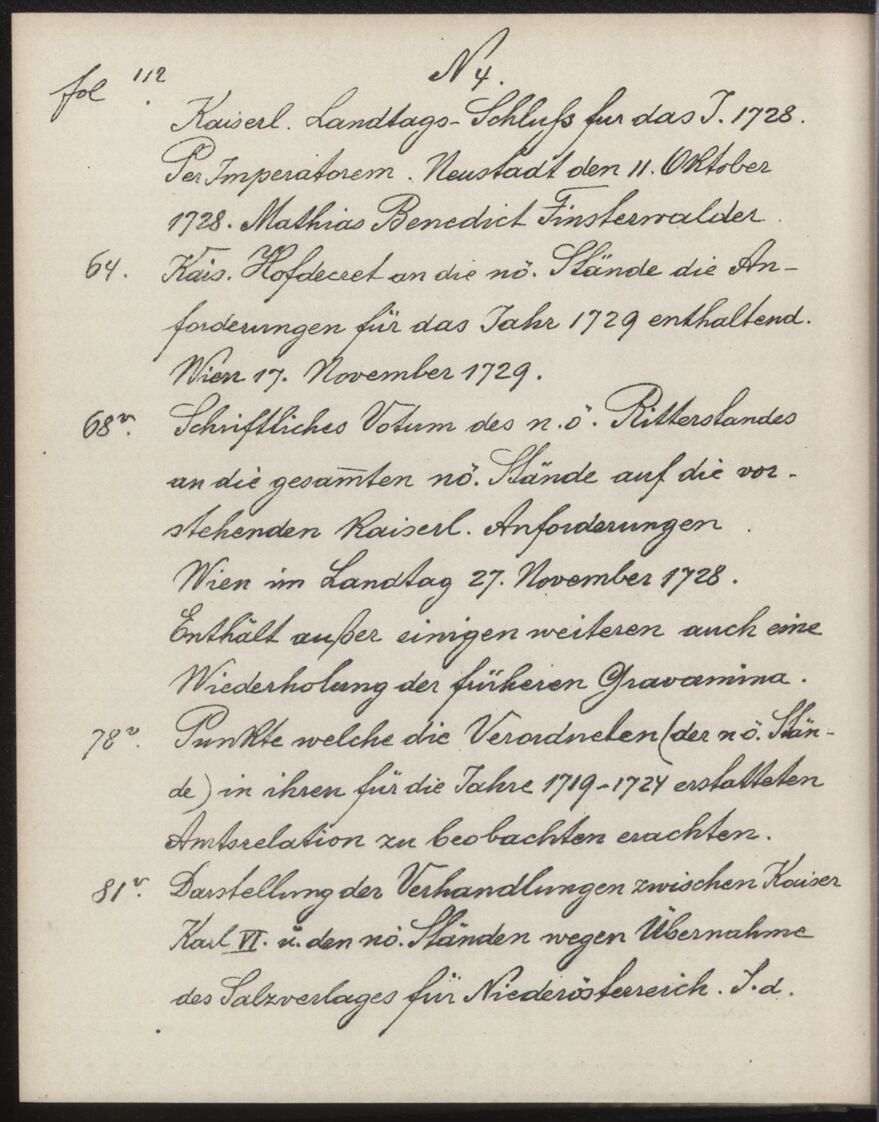 N 4.
fol 112.
Kaiserl. Landtags-Schluß fur das J. 1728.
Per Imperatorem. Neustadt den 11. Oktober
1728. Mathias Benedict Finsterwalder.
64. Kais. Hofdecret an die nö. Stände die An-
forderungen für das Jahr 1729 enthaltend.
Wien 17. November 1729.
68v. Schriftliches Votum des n.ö. Ritterstandes
an die gesam̅ten nö. Stände auf die vor-
stehenden Kaiserl. Anforderungen.
Wien im Landtag 27. November 1728.
Enthält außer einigen weiteren auch eine
Wiederholung der früheren Gravamina.
78v. Punkte welche die Verordneten (der nö. Stän-
de) in ihren für die Jahre 1719-1724 erstatteten
Amtsrelation zu beobachten erachten.
81v. Darstellung der Verhandlungen zwischen Kaiser
Karl VI. u. den nö. Ständen wegen Übernahme
des Salzverlages für Niederösterreich. S.d.